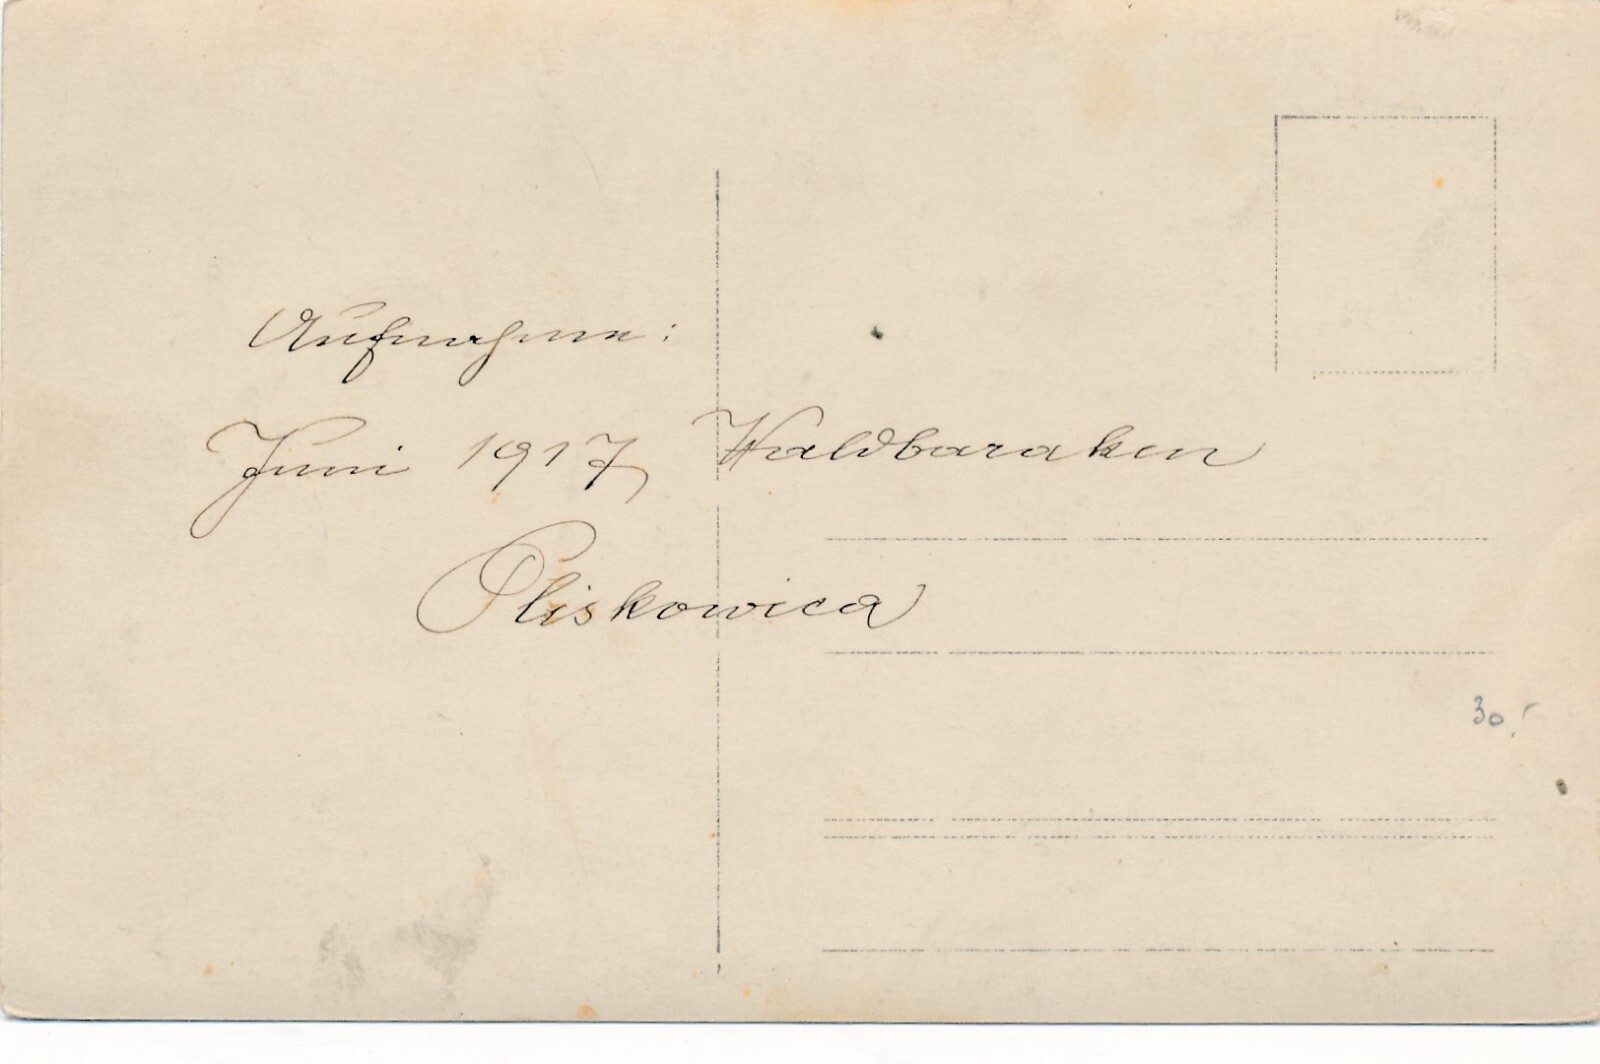 Aufnahme:
Juni 1917, Waldbaraken
Pliskowica
30,-